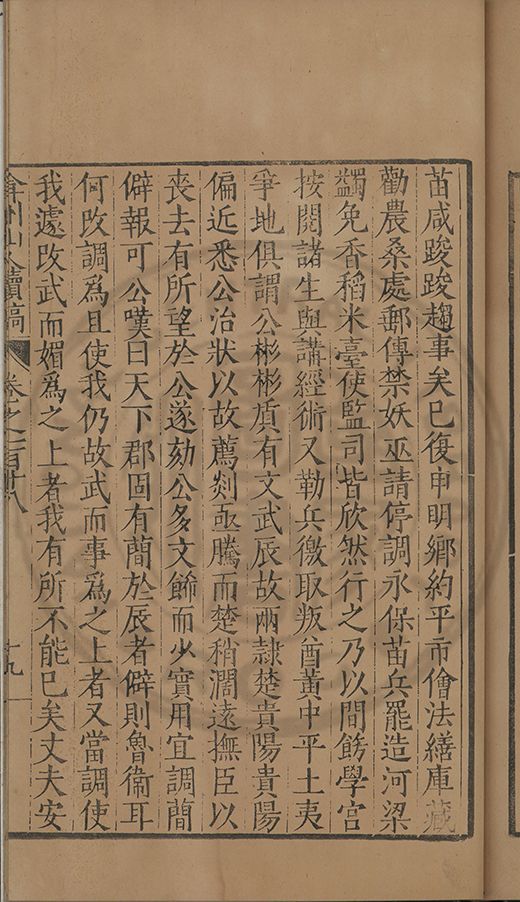 苗咸踆踆趨事矣已復申明鄉約平市儈法繕庫藏
勸農桑處郵傳禁妖巫請停調永保苗兵罷造河梁
蠲免香稻米臺使監司皆欣然行之乃以間餝學宮
按閱諸生與講經術又勒兵徼取叛酋黃中平土夷
爭地俱謂公彬彬質有文武辰故兩隷楚貴陽貴陽
偏近悉公治狀以故薦剡亟騰而楚稍濶遠撫臣以
喪去有所望於公遂劾公多文餙而少實用宜調簡
僻報可公嘆曰天下郡固有蕳於辰者僻則魯衞耳
何改調爲且使我仍故武而事爲之上者又當調使
我遽改武而媚爲之上者我有所不能已矣丈夫安
弇州山人續稿 卷之一百廿八 十九